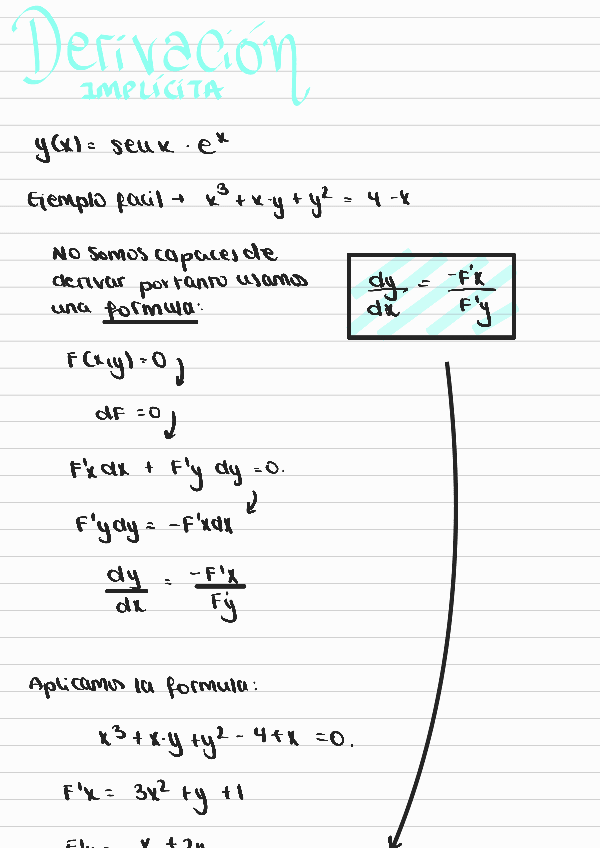 Derivación
IMPLÍCITA
y(x) = senx · eˣ
Ejemplo facil → x³ + x·y + y² = 4 - x
No somos capaces de
derivar por tanto usamos
una formula:
dy/dx = -F'x/F'y
F(x,y) = 0
dF = 0
F'x dx + F'y dy = 0.
F'y dy = -F'x dx
dy/dx = -F'x/F'y
Aplicamos la formula:
x³ + x·y + y² - 4 + x = 0.
F'x = 3x² + y + 1
F'y = x + 2y